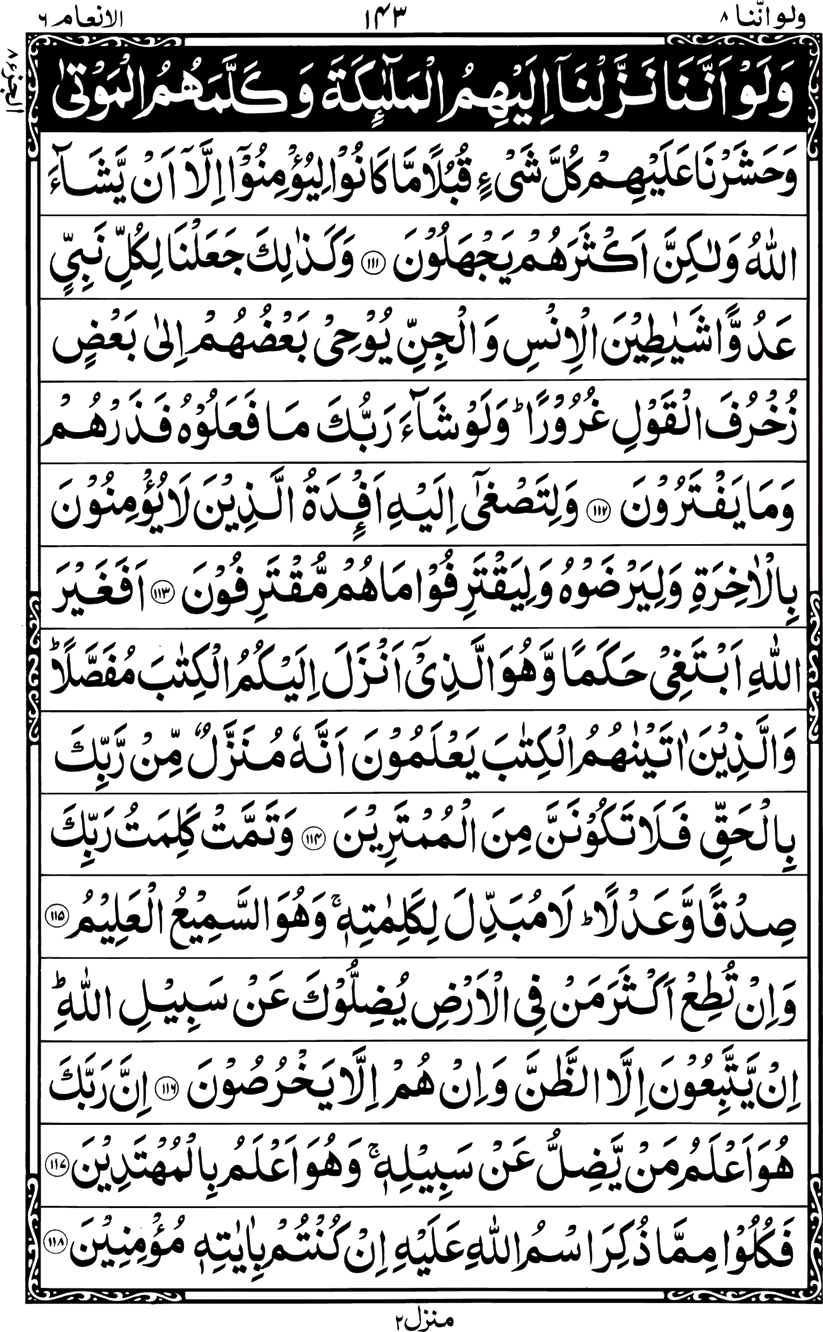 ولو اننا ۸ ۱۴۳ الانعام ۶
الجزء ۸
وَلَوْ اَنَّنَا نَزَّلْنَاۤ اِلَيْهِمُ الْمَلٰٓئِكَةَ وَ كَلَّمَهُمُ الْمَوْتٰى
وَحَشَرْنَا عَلَيْهِمْ كُلَّ شَىْءٍ قُبُلًا مَّا كَانُوْا لِيُؤْمِنُوْۤا اِلَّاۤ اَنْ يَّشَآءَ
اللّٰهُ وَلٰكِنَّ اَكْثَرَهُمْ يَجْهَلُوْنَ ۱۱۱ وَكَذٰلِكَ جَعَلْنَا لِكُلِّ نَبِىٍّ
عَدُوًّا شَيٰطِيْنَ الْاِنْسِ وَ الْجِنِّ يُوْحِىْ بَعْضُهُمْ اِلٰى بَعْضٍ
زُخْرُفَ الْقَوْلِ غُرُوْرًا ؕ وَلَوْ شَآءَ رَبُّكَ مَا فَعَلُوْهُ فَذَرْهُمْ
وَمَا يَفْتَرُوْنَ ۱۱۲ وَلِتَصْغٰٓى اِلَيْهِ اَفْـِٕدَةُ الَّذِيْنَ لَا يُؤْمِنُوْنَ
بِالْاٰخِرَةِ وَلِيَرْضَوْهُ وَلِيَقْتَرِفُوْا مَا هُمْ مُّقْتَرِفُوْنَ ۱۱۳ اَفَغَيْرَ
اللّٰهِ اَبْتَغِىْ حَكَمًا وَّهُوَ الَّذِىْۤ اَنْزَلَ اِلَيْكُمُ الْكِتٰبَ مُفَصَّلًا ؕ
وَالَّذِيْنَ اٰتَيْنٰهُمُ الْكِتٰبَ يَعْلَمُوْنَ اَنَّهٗ مُنَزَّلٌ مِّنْ رَّبِّكَ
بِالْحَقِّ فَلَا تَكُوْنَنَّ مِنَ الْمُمْتَرِيْنَ ۱۱۴ وَتَمَّتْ كَلِمَتُ رَبِّكَ
صِدْقًا وَّعَدْلًا ؕ لَا مُبَدِّلَ لِكَلِمٰتِهٖ ۚ وَهُوَ السَّمِيْعُ الْعَلِيْمُ ۱۱۵
وَاِنْ تُطِعْ اَكْثَرَ مَنْ فِى الْاَرْضِ يُضِلُّوْكَ عَنْ سَبِيْلِ اللّٰهِ ؕ
اِنْ يَّتَّبِعُوْنَ اِلَّا الظَّنَّ وَاِنْ هُمْ اِلَّا يَخْرُصُوْنَ ۱۱۶ اِنَّ رَبَّكَ
هُوَ اَعْلَمُ مَنْ يَّضِلُّ عَنْ سَبِيْلِهٖ ۚ وَهُوَ اَعْلَمُ بِالْمُهْتَدِيْنَ ۱۱۷
فَكُلُوْا مِمَّا ذُكِرَ اسْمُ اللّٰهِ عَلَيْهِ اِنْ كُنْتُمْ بِاٰيٰتِهٖ مُؤْمِنِيْنَ ۱۱۸
منزل ۲